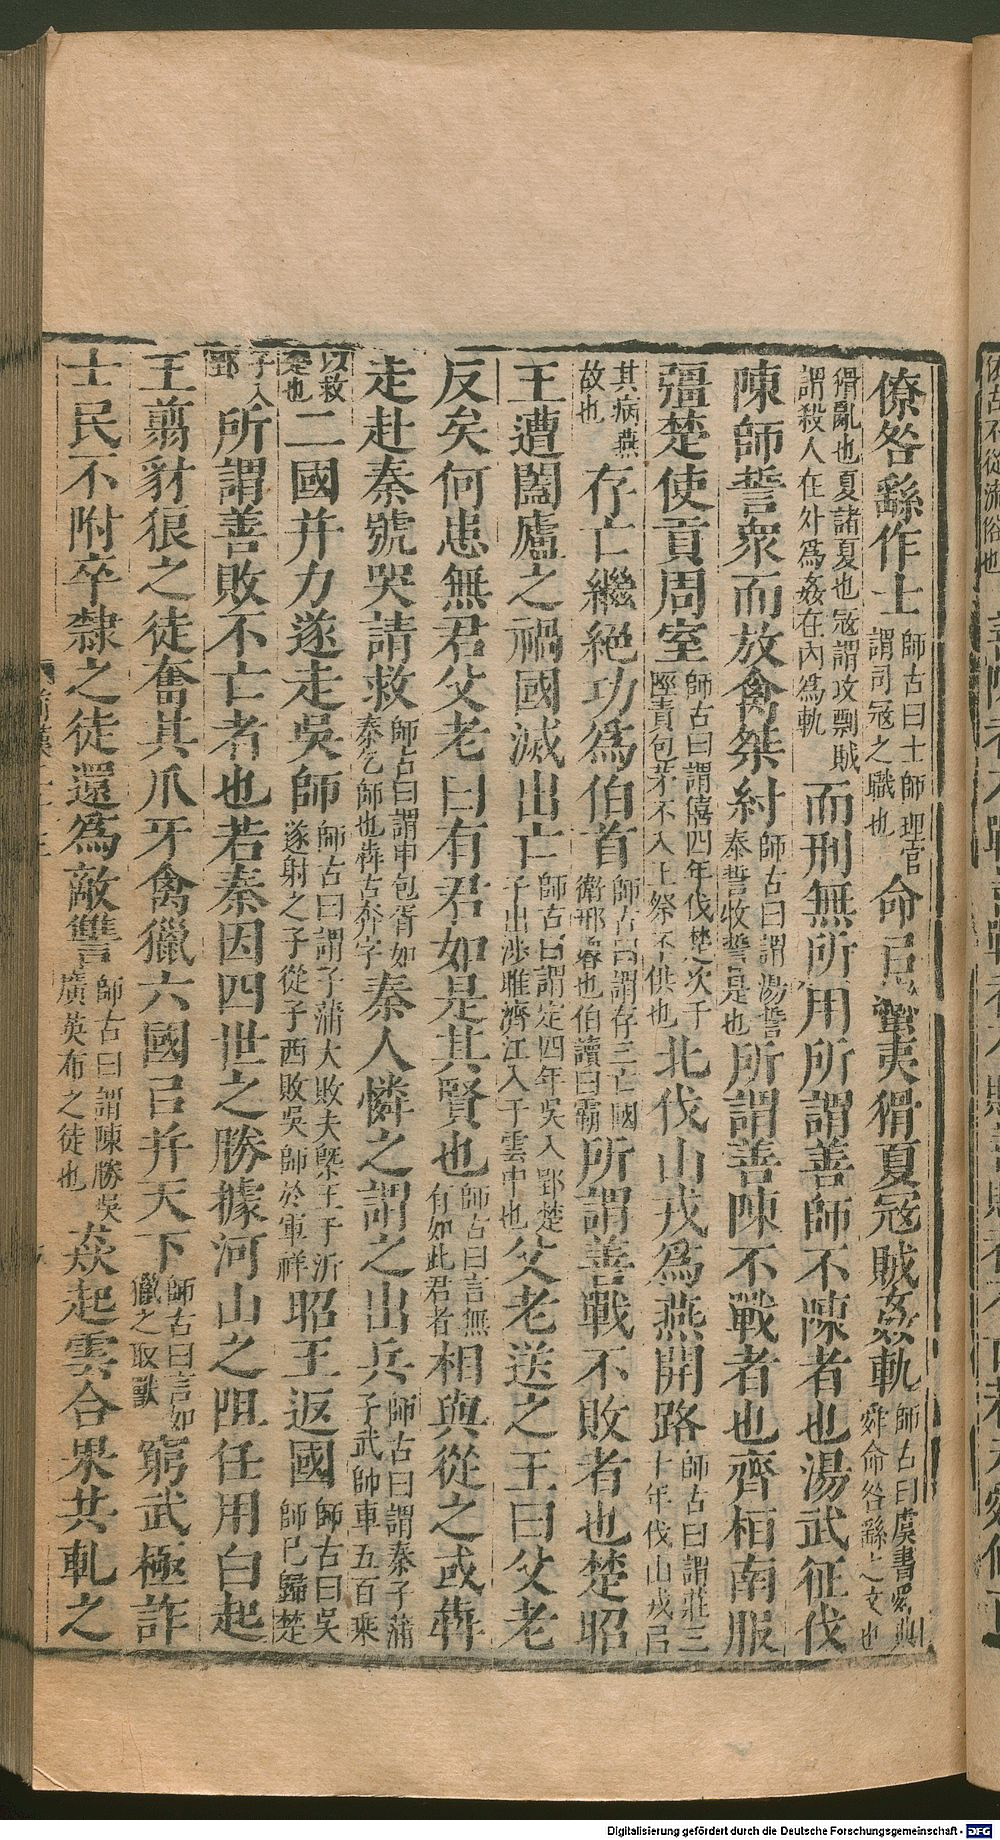 僚咎繇作士師古曰士師理官謂司寇之職也命㠯蠻夷猾夏寇賊姦軌師古曰虞書舜典舜命咎繇之文也
猾亂也夏諸夏也寇謂攻剽賊謂殺人在外爲姦在內爲軌而刑無所用所謂善師不陳者也湯武征伐
陳師誓衆而放禽桀紂師古曰謂湯誓泰誓牧誓是也所謂善陳不戰者也齊桓南服
彊楚使貢周室師古曰謂僖四年伐楚次于陘責包茅不入王祭不供也北伐山戎爲燕開路師古曰謂莊三十年伐山戎㠯
其病燕故也存亡繼絕功爲伯首師古曰謂存三亡國衛邢魯也伯讀曰霸所謂善戰不敗者也楚昭
王遭闔廬之禍國滅出亡師古曰謂定四年吳入郢楚子出涉雎濟江入于雲中也父老送之王曰父老
反矣何患無君父老曰有君如是其賢也師古曰言無有如此君者相與從之或犇
走赴秦號哭請救師古曰謂申包胥如秦乞師也犇古奔字秦人憐之謂之出兵師古曰謂秦子蒲子武帥車五百乘
以救楚也二國并力遂走吳師師古曰謂子蒲大敗夫槩王于沂遂射之子從子西敗吳師於軍祥昭王返國師古曰吳師已歸楚
子入郢所謂善敗不亡者也若秦因四世之勝據河山之阻任用白起
王翦豺狼之徒奮其爪牙禽獵六國㠯并天下師古曰言如獵之取獸窮武極詐
士民不附卒隸之徒還爲敵讐師古曰謂陳勝吳廣英布之徒也猋起雲合果共軋之
Digitalisierung gefördert durch die Deutsche Forschungsgemeinschaft - DFG